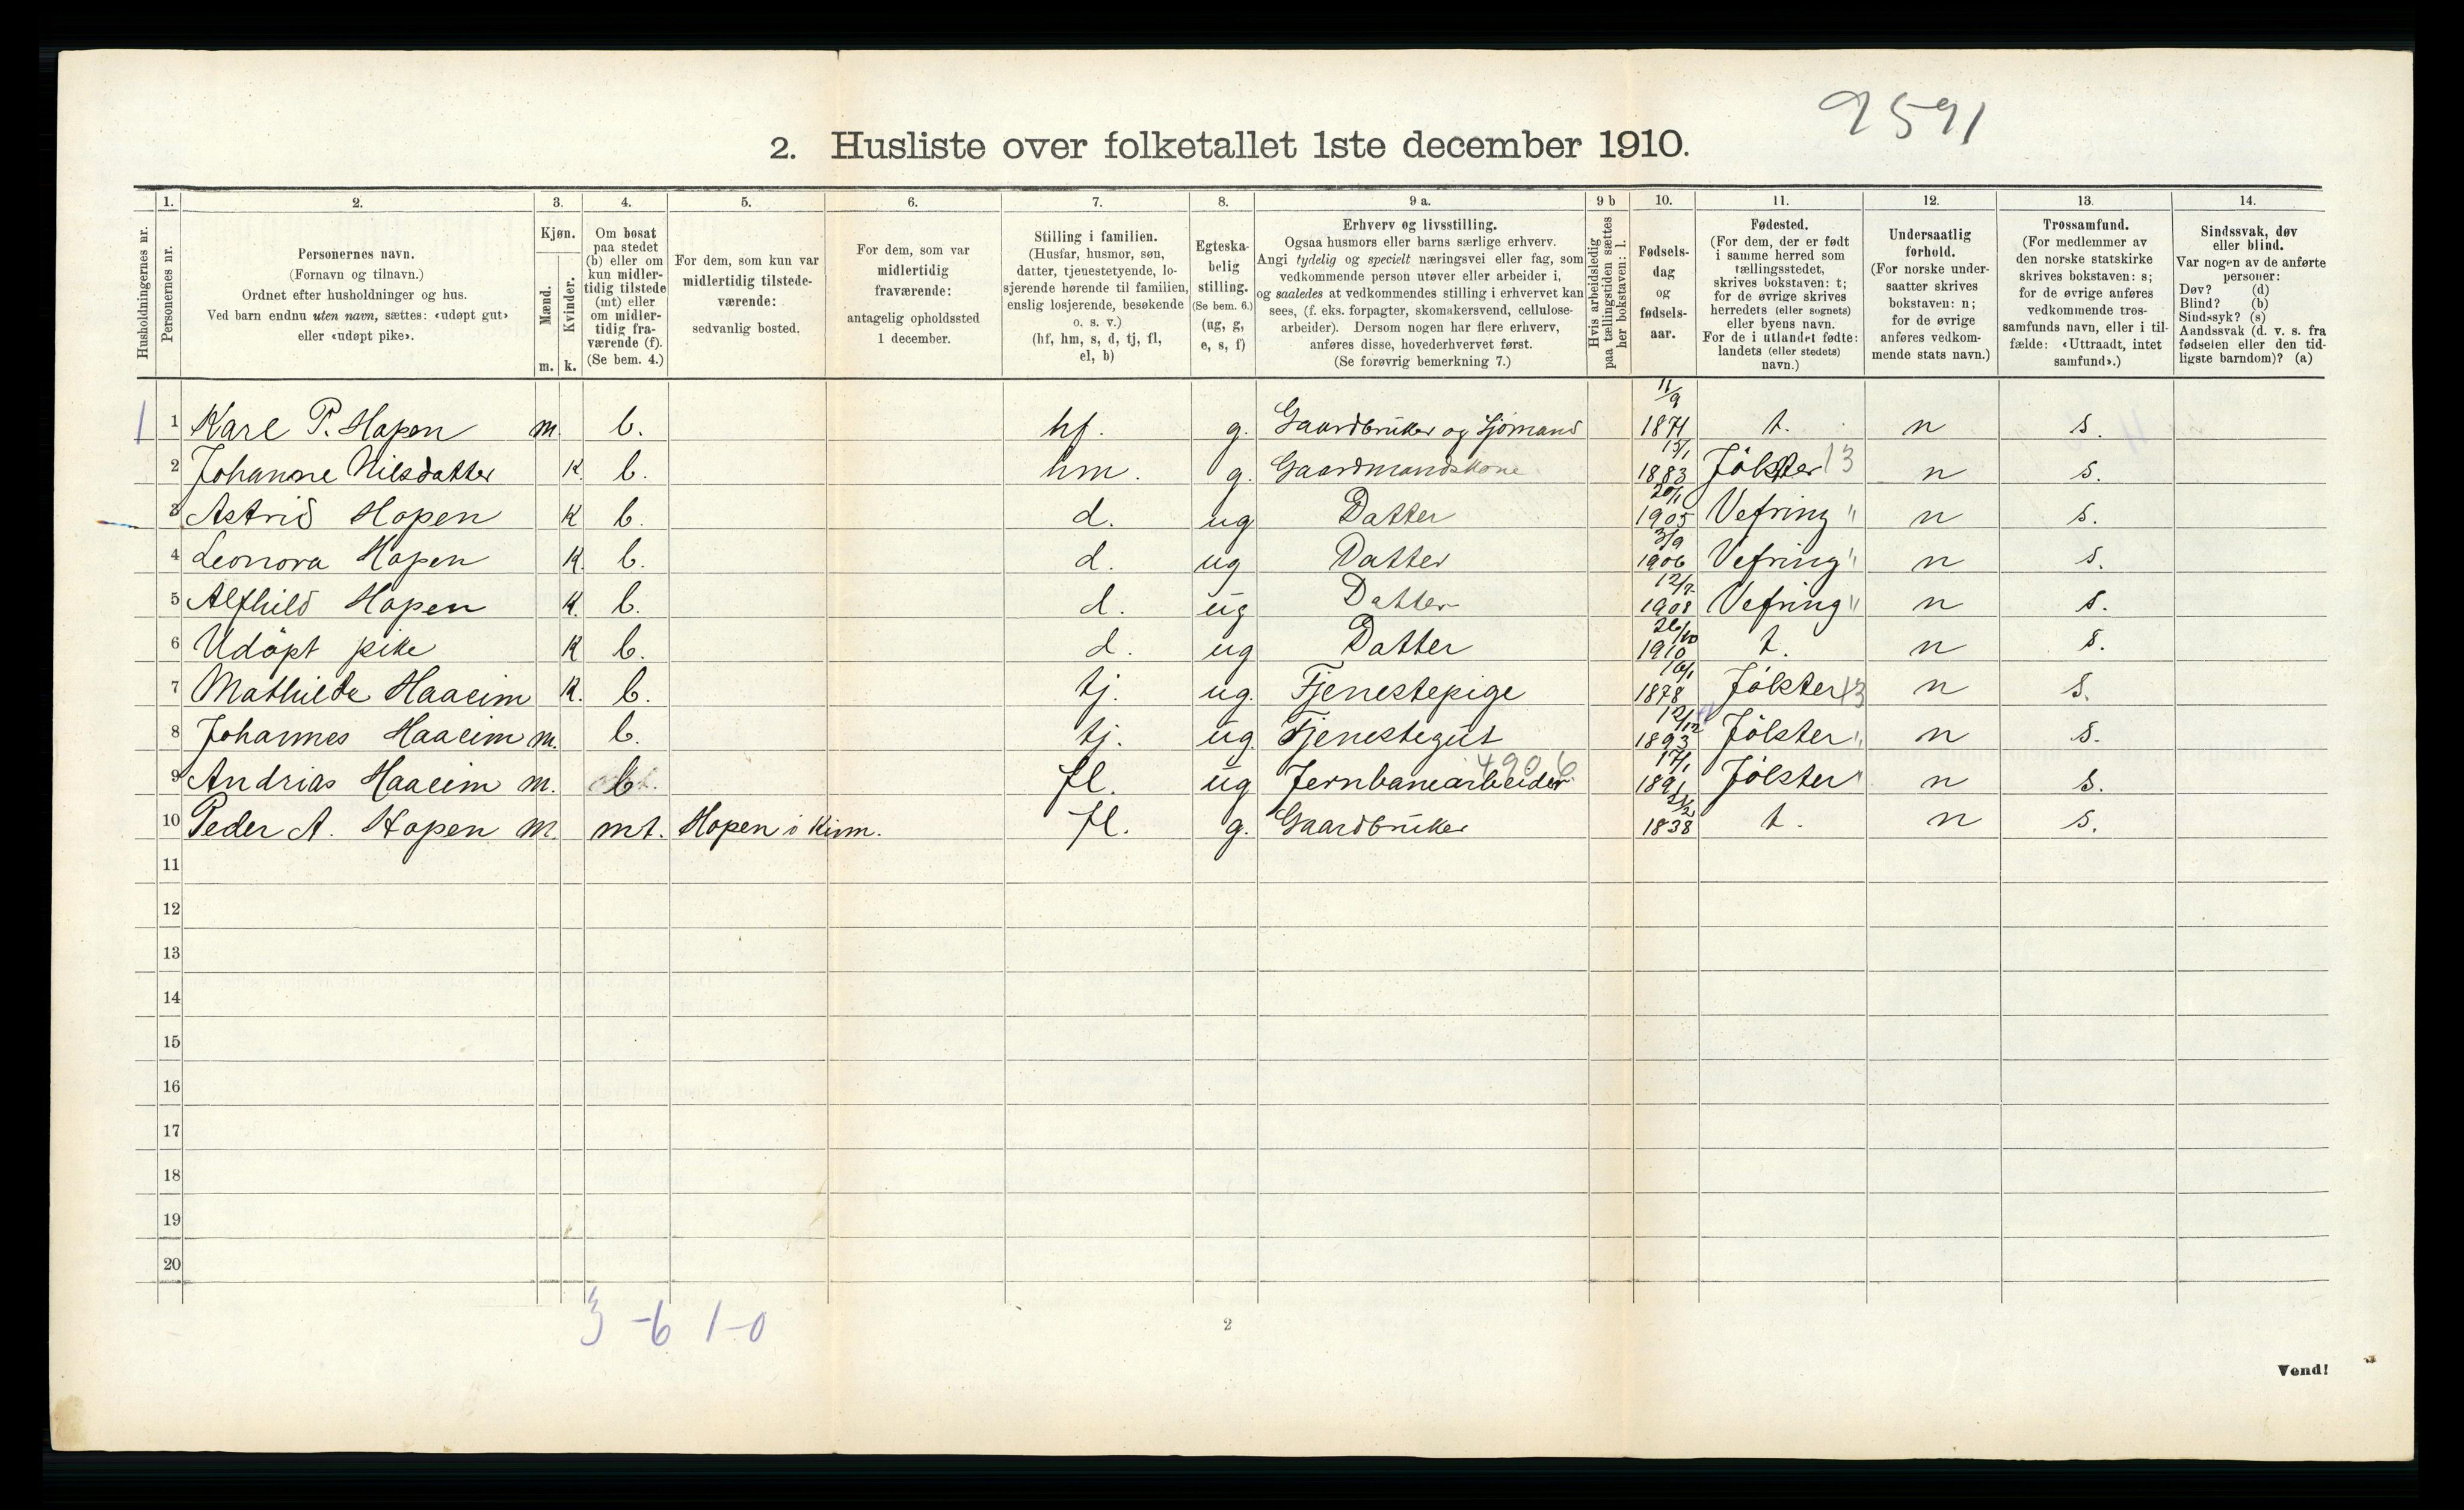 9591
2. Husliste over folketallet 1ste december 1910.
Husholdningernes nr.
1. Personernes nr.
2. Personernes navn.
(Fornavn og tilnavn.)
Ordnet efter husholdninger og hus.
Ved barn endnu uten navn, sættes: «udøpt gut»
eller «udøpt pike».
3. Kjøn.
Mænd. m.
Kvinder. k.
4. Om bosat
paa stedet
(b) eller om
kun midler-
tidig tilstede
(mt) eller
om midler-
tidig fra-
værende (f).
(Se bem. 4.)
5. For dem, som kun var
midlertidig tilstede-
værende:
sedvanlig bosted.
6. For dem, som var
midlertidig
fraværende:
antagelig opholdssted
1 december.
7. Stilling i familien.
(Husfar, husmor, søn,
datter, tjenestetyende, lo-
sjerende hørende til familien,
enslig losjerende, besøkende
o. s. v.)
(hf, hm, s, d, tj, fl,
el, b)
8. Egteska-
belig
stilling.
(Se bem. 6.)
(ug, g,
e, s, f)
9 a. Erhverv og livsstilling.
Ogsaa husmors eller barns særlige erhverv.
Angi tydelig og specielt næringsvei eller fag, som
vedkommende person utøver eller arbeider i,
og saaledes at vedkommendes stilling i erhvervet kan
sees, (f. eks. forpagter, skomakersvend, cellulose-
arbeider). Dersom nogen har flere erhverv,
anføres disse, hovederhvervet først.
(Se forøvrig bemerkning 7.)
9 b Hvis arbeidsledig
paa tællingstiden sættes
her bokstaven: l.
10. Fødsels-
dag
og
fødsels-
aar.
11. Fødested.
(For dem, der er født
i samme herred som
tællingsstedet,
skrives bokstaven: t;
for de øvrige skrives
herredets (eller sognets)
eller byens navn.
For de i utlandet fødte:
landets (eller stedets)
navn.)
12. Undersaatlig
forhold.
(For norske under-
saatter skrives
bokstaven: n;
for de øvrige
anføres vedkom-
mende stats navn.)
13. Trossamfund.
(For medlemmer av
den norske statskirke
skrives bokstaven: s;
for de øvrige anføres
vedkommende tros-
samfunds navn, eller i til-
fælde: «Uttraadt, intet
samfund».)
14. Sindssvak, døv
eller blind.
Var nogen av de anførte
personer:
Døv? (d)
Blind? (b)
Sindssyk? (s)
Aandssvak (d. v. s. fra
fødselen eller den tid-
ligste barndom)? (a)
1 1 Karl P. Hopen m. b. hf. g. Gaardbruker og Sjømand 11/9 1871 t. n s.
2 Johanne Nilsdatter K. b. hm. g. Gaardmandskone 15/1 1883 Jölster 13 n s.
3 Astrid Hopen K b. d. ug Datter 20/1 1905 Vefring " n s.
4 Leonora Hopen K. b. d. ug Datter 3/9 1906 Vefring " n s.
5 Alfhild Hopen K. b. d. ug Datter 12/7 1908 Vefring " n s.
6 Udöpt pike K b. d. ug Datter 26/10 1910 t. n s.
7 Mathilde Haaeim K. b. tj. ug. Tjenestepige 16/1 1878 Jölster 13 n s.
8 Johannes Haaeim m. b. tj. ug. Tjenestegut 12/12 1893 Jölster " n s.
9 Andrias Haaeim m. b. fl. ug Jernbanearbeider 4906 17/1 1891 Jölster " n s.
10 Peder A. Hopen m. mt. Hopen i Kinn. fl. g. Gaardbruker 1838 t. n s.
11
12
13
14
15
16
17
18
19
20
3-6 1-0
2
Vend!